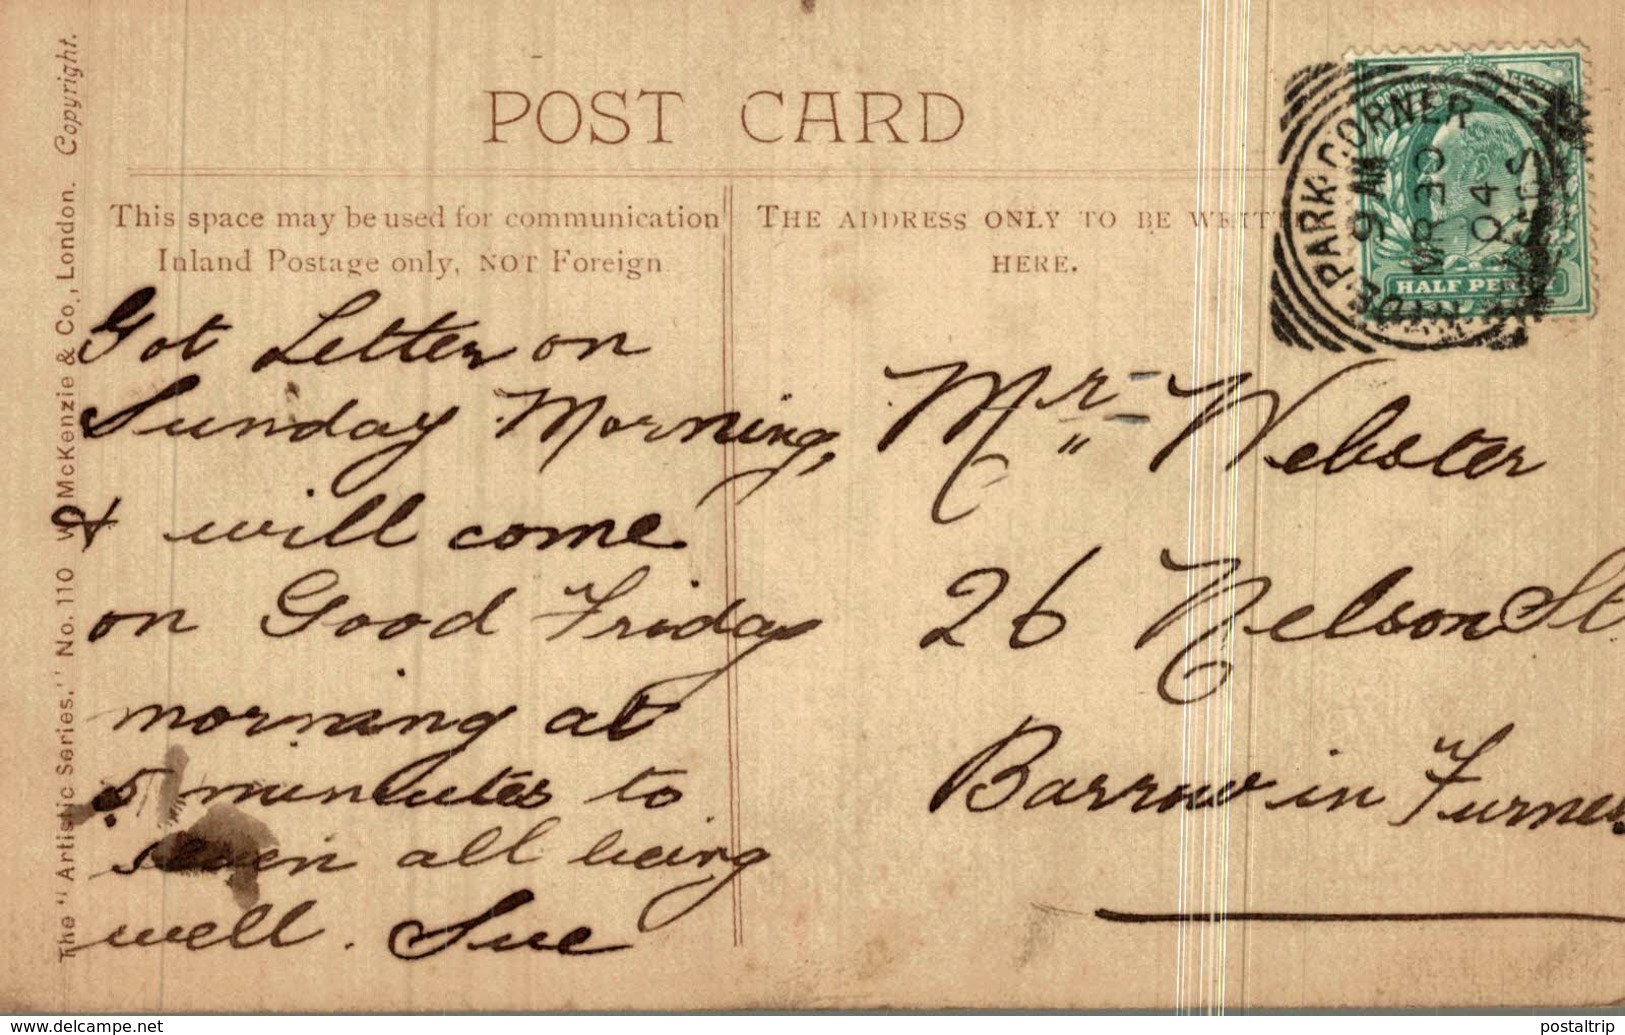 POST CARD
This space may be used for communication
Inland Postage only, NOT Foreign
THE ADDRESS ONLY TO BE WRITT
HERE.
Got Letter on
Sunday Morning,
& will come
on Good Friday
morning at
5 minutes to
seven all being
well. Sue
Mr Webster
26 Nelson St
Barrow in Furness
PARK CORNER
9 AM
MR 30
04
HALF PENNY
The "Artistic Series," No. 110 Wm McKenzie & Co., London. Copyright.
www.delcampe.net
postaltrip